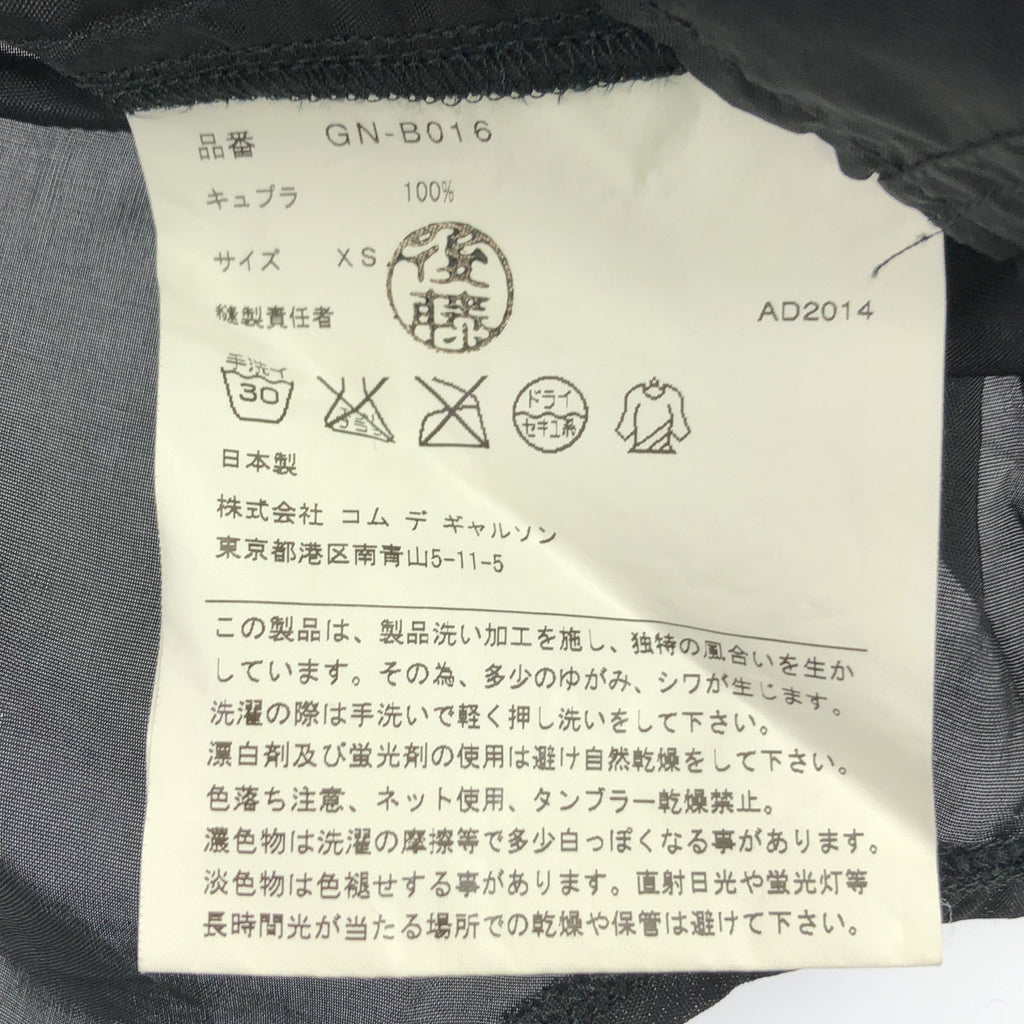 品番 GN-B016
キュプラ 100%
サイズ XS
後藤
縫製責任者 AD2014
手洗イ
30
エンソサラシ
ドライ
セキユ系
日本製
株式会社 コム デ ギャルソン
東京都港区南青山5-11-5
この製品は、製品洗い加工を施し、独特の風合いを生か
しています。その為、多少のゆがみ、シワが生じます。
洗濯の際は手洗いで軽く押し洗いをして下さい。
漂白剤及び蛍光剤の使用は避け自然乾燥をして下さい。
色落ち注意、ネット使用、タンブラー乾燥禁止。
濃色物は洗濯の摩擦等で多少白っぽくなる事があります。
淡色物は色褪せする事があります。直射日光や蛍光灯等
長時間光が当たる場所での乾燥や保管は避けて下さい。